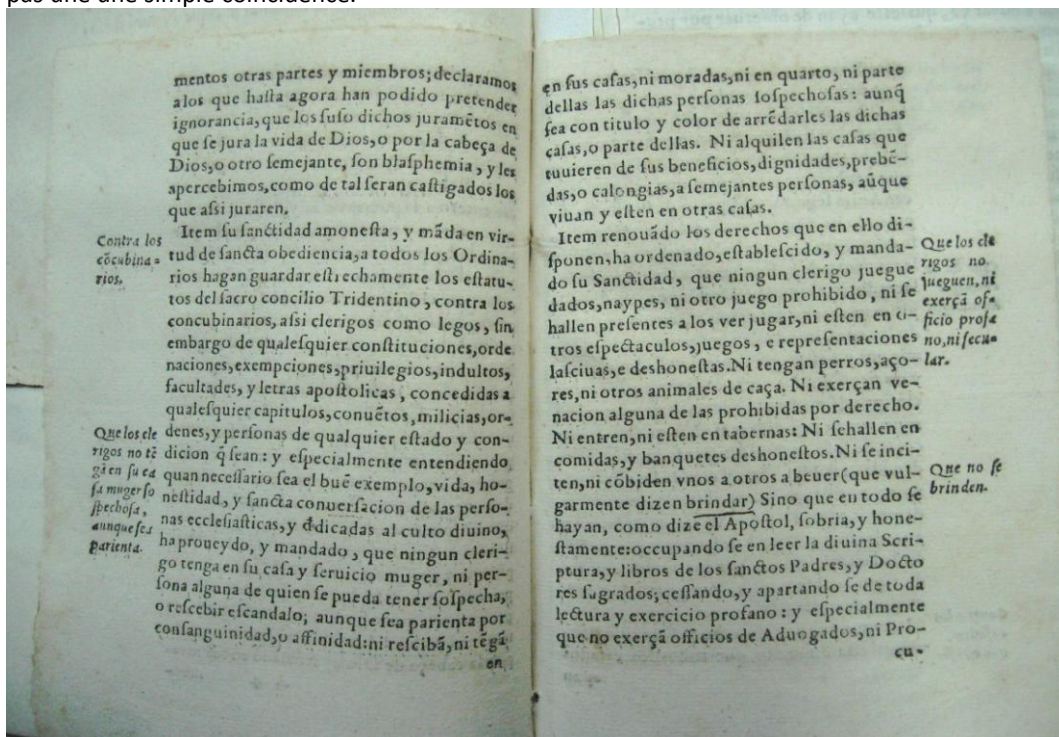 pas une une simple coïncidence.
mentos otras partes y miembros; declaramos
alos que haſta agora han podido pretender
ignorancia, que los ſuſo dichos juramẽtos en
que ſe jura la vida de Dios, o por la cabeça de
Dios, o otro ſemejante, ſon blaſphemia, y les
apercebimos, como de tal ſeran caſtigados los
que aſsi juraren.
Contra los
cõcubina-
rios.
Item ſu ſanctidad amoneſta, y mãda en vir-
tud de ſancta obediencia, a todos los Ordina-
rios hagan guardar eſtrechamente los eſtatu-
tos del ſacro concilio Tridentino, contra los
concubinarios, aſsi clerigos como legos, ſin
embargo de qualeſquier conſtituciones, orde
naciones, exempciones, priuilegios, indultos,
facultades, y letras apoſtolicas, concedidas a
qualeſquier capitulos, conuẽtos, milicias, or-
denes, y perſonas de qualquier eſtado y con-
dicion q̃ ſean: y eſpecialmente entendiendo
quan neceſſario ſea el buẽ exemplo, vida, ho-
neſtidad, y ſancta conuerſacion de las perſo-
nas eccleſiaſticas, y dedicadas al culto diuino,
ha proueydo, y mandado, que ningun cleri-
go tenga en ſu caſa y ſeruicio muger, ni per-
ſona alguna de quien ſe pueda tener ſoſpecha,
o reſcebir eſcandalo; aunque ſea parienta por
conſanguinidad, o affinidad: ni reſcibã, ni tẽgã
en
Que los cle
rigos no tẽ
gã en ſu ca
ſa muger ſo
ſpechoſa,
aunque ſea
parienta.
en ſus caſas, ni moradas, ni en quarto, ni parte
dellas las dichas perſonas ſoſpechoſas: aunq̃
ſea con titulo y color de arrẽdarles las dichas
caſas, o parte dellas. Ni alquilen las caſas que
tuuieren de ſus beneficios, dignidades, prebẽ-
das, o calongias, a ſemejantes perſonas, aũque
viuan y eſten en otras caſas.
Item renouãdo los derechos que en ello di-
ſponen, ha ordenado, eſtableſcido, y manda-
do ſu Sanctidad, que ningun clerigo juegue
dados, naypes, ni otro juego prohibido, ni ſe
hallen preſentes a los ver jugar, ni eſten en o-
tros eſpectaculos, juegos, e repreſentaciones
laſciuas, e deshoneſtas. Ni tengan perros, aço-
res, ni otros animales de caça. Ni exerçan ve-
nacion alguna de las prohibidas por derecho.
Ni entren, ni eſten en tabernas: Ni ſe hallen en
comidas, y banquetes deshoneſtos. Ni ſe inci-
ten, ni cõbiden vnos a otros a beuer (que vul-
garmente dizen brindar) Sino que en todo ſe
hayan, como dize el Apoſtol, ſobria, y hone-
ſtamente: occupando ſe en leer la diuina Scri-
ptura, y libros de los ſanctos Padres, y Docto
res ſagrados; ceſſando, y apartando ſe de toda
lectura y exercicio profano: y eſpecialmente
que no exerçã officios de Aduogados, ni Pro-
cu-
Que los cle
rigos no
jueguen, ni
exerçã of-
ficio profa
no, ni ſecu-
lar.
Que no ſe
brinden.